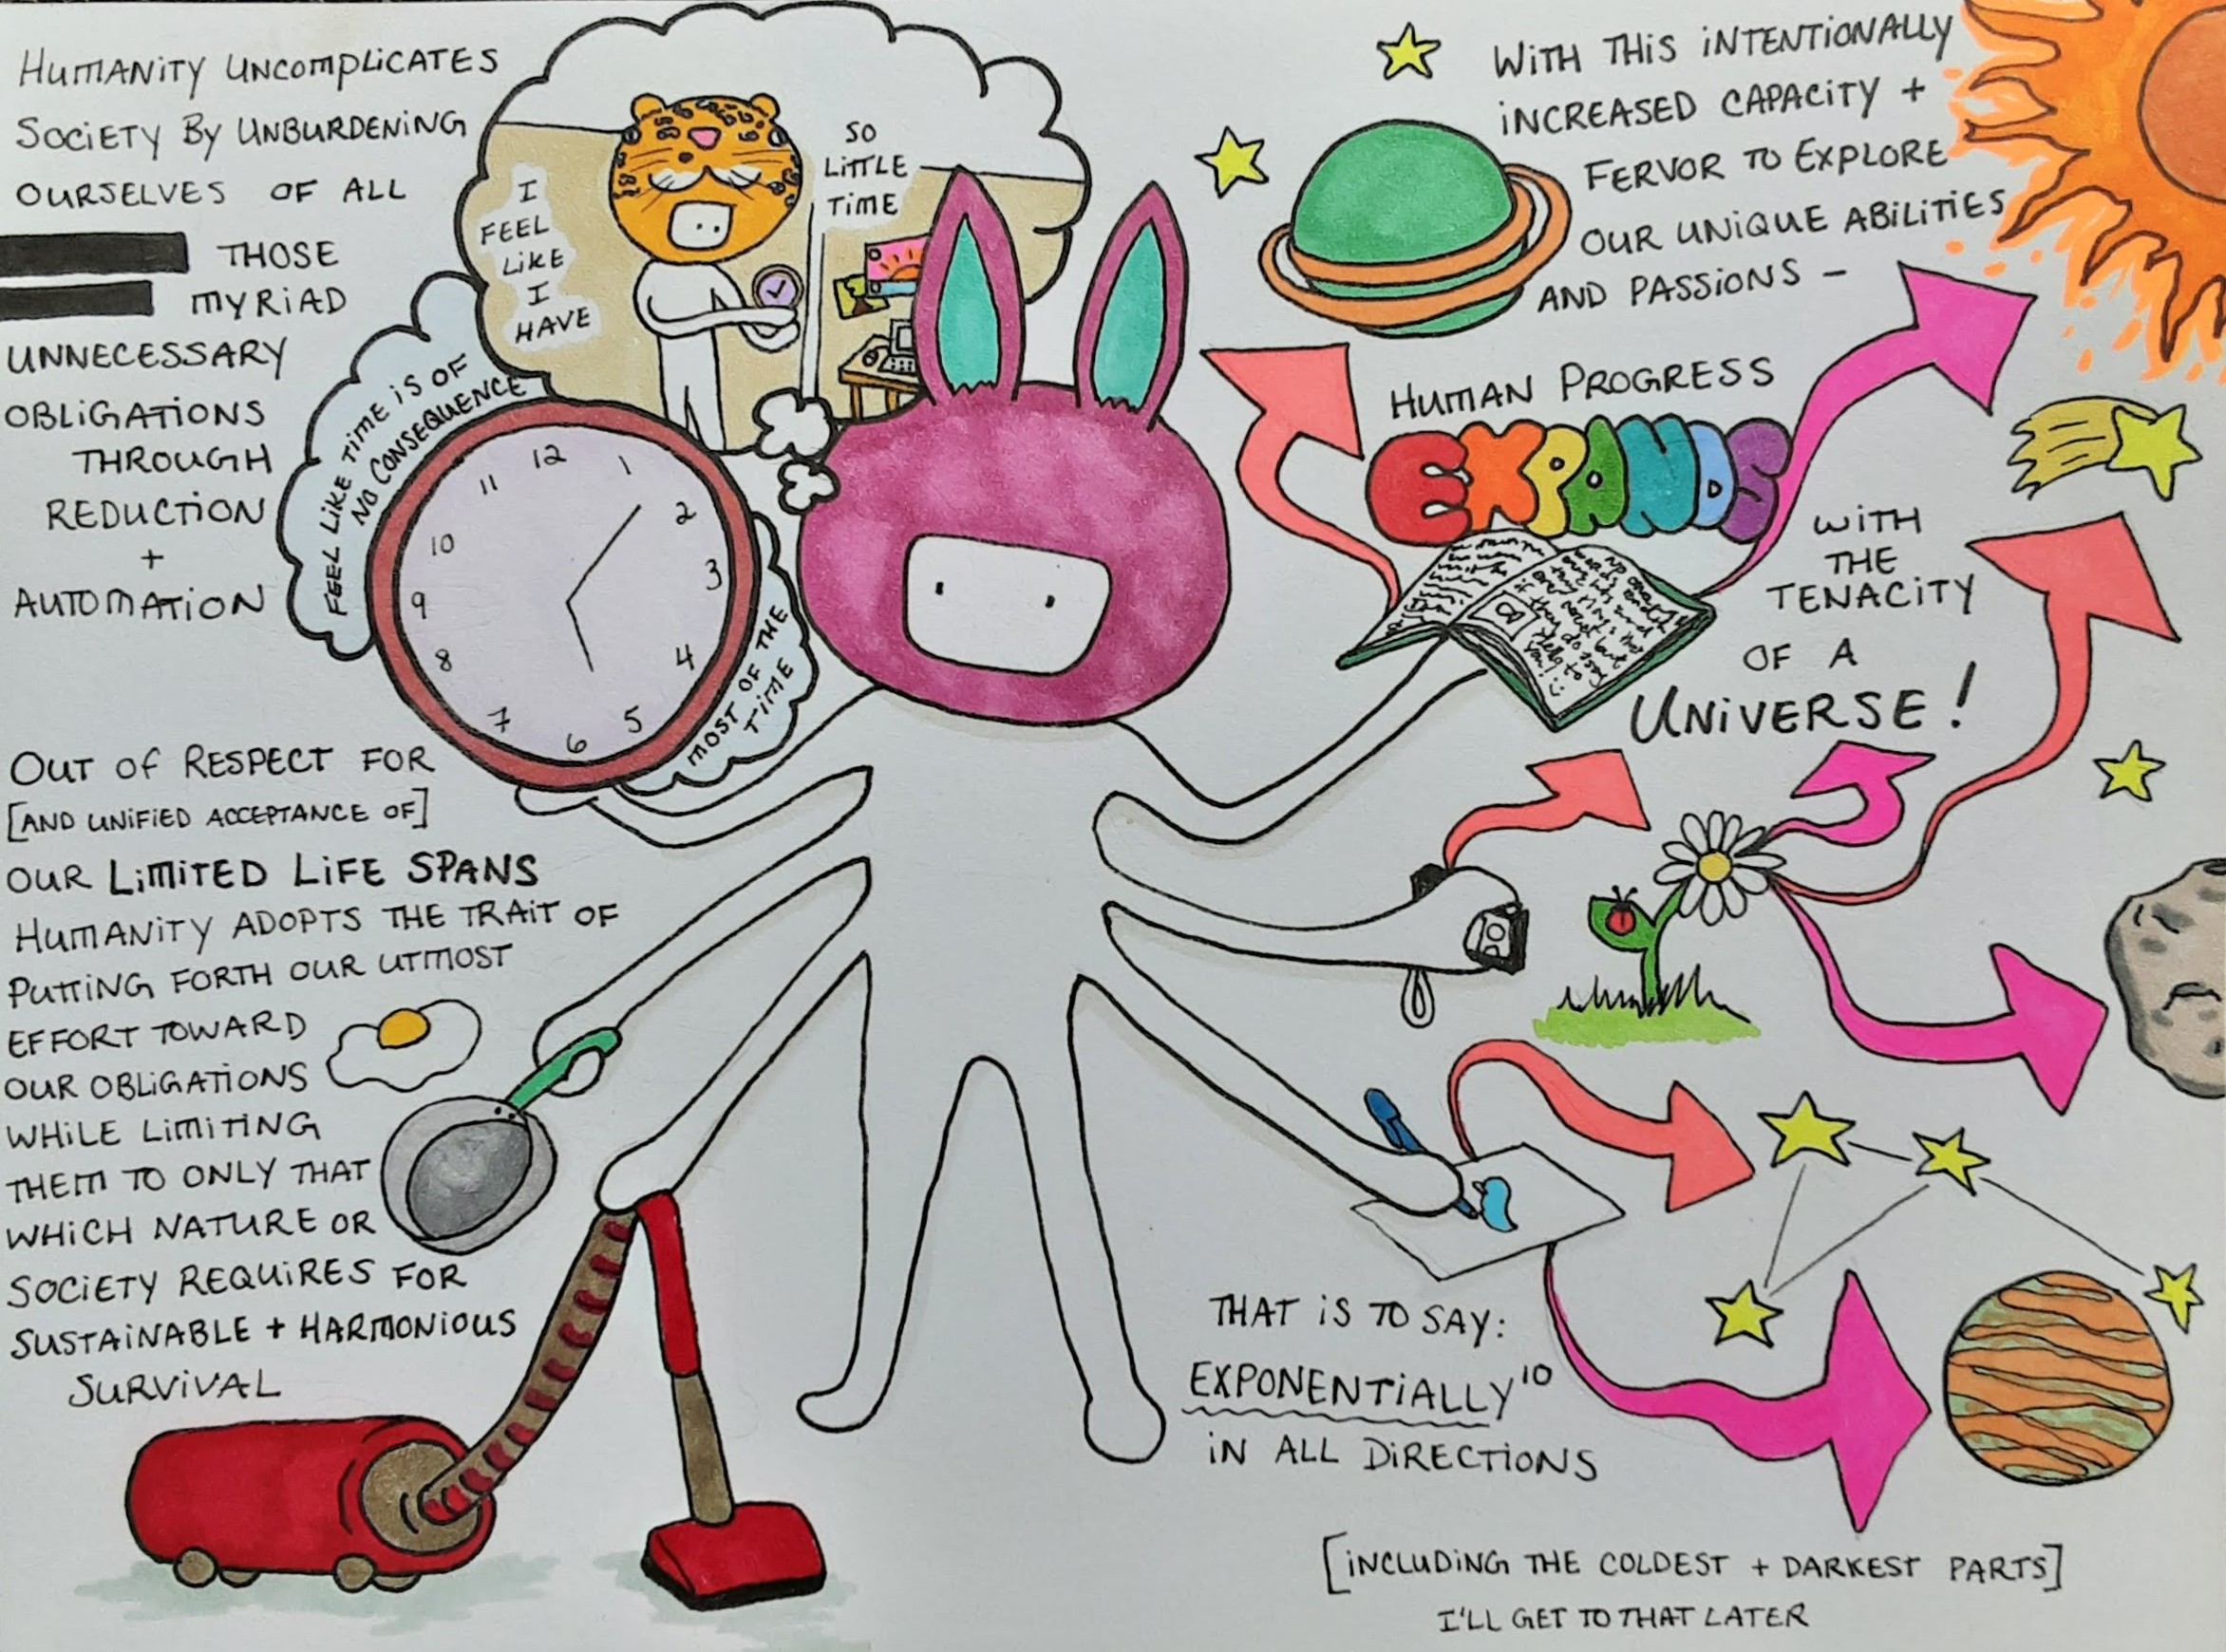 HUMANITY UNCOMPLICATES
SOCIETY BY UNBURDENING
OURSELVES OF ALL
THOSE
MYRIAD
UNNECESSARY
OBLIGATIONS
THROUGH
REDUCTION
+
AUTOMATION
I
FEEL
LIKE
I
HAVE
SO
LITTLE
TIME
FEEL LIKE TIME IS OF
NO CONSEQUENCE
MOST OF THE
TIME
12
1
2
3
4
5
6
7
8
9
10
11
OUT OF RESPECT FOR
[AND UNIFIED ACCEPTANCE OF]
OUR LIMITED LIFE SPANS
HUMANITY ADOPTS THE TRAIT OF
PUTTING FORTH OUR UTMOST
EFFORT TOWARD
OUR OBLIGATIONS
WHILE LIMITING
THEM TO ONLY THAT
WHICH NATURE OR
SOCIETY REQUIRES FOR
SUSTAINABLE + HARMONIOUS
SURVIVAL
WITH THIS INTENTIONALLY
INCREASED CAPACITY +
FERVOR TO EXPLORE
OUR UNIQUE ABILITIES
AND PASSIONS –
HUMAN PROGRESS
EXPANDS
WITH
THE
TENACITY
OF A
UNIVERSE!
THAT IS TO SAY:
EXPONENTIALLY¹⁰
IN ALL DIRECTIONS
[INCLUDING THE COLDEST + DARKEST PARTS]
I'LL GET TO THAT LATER